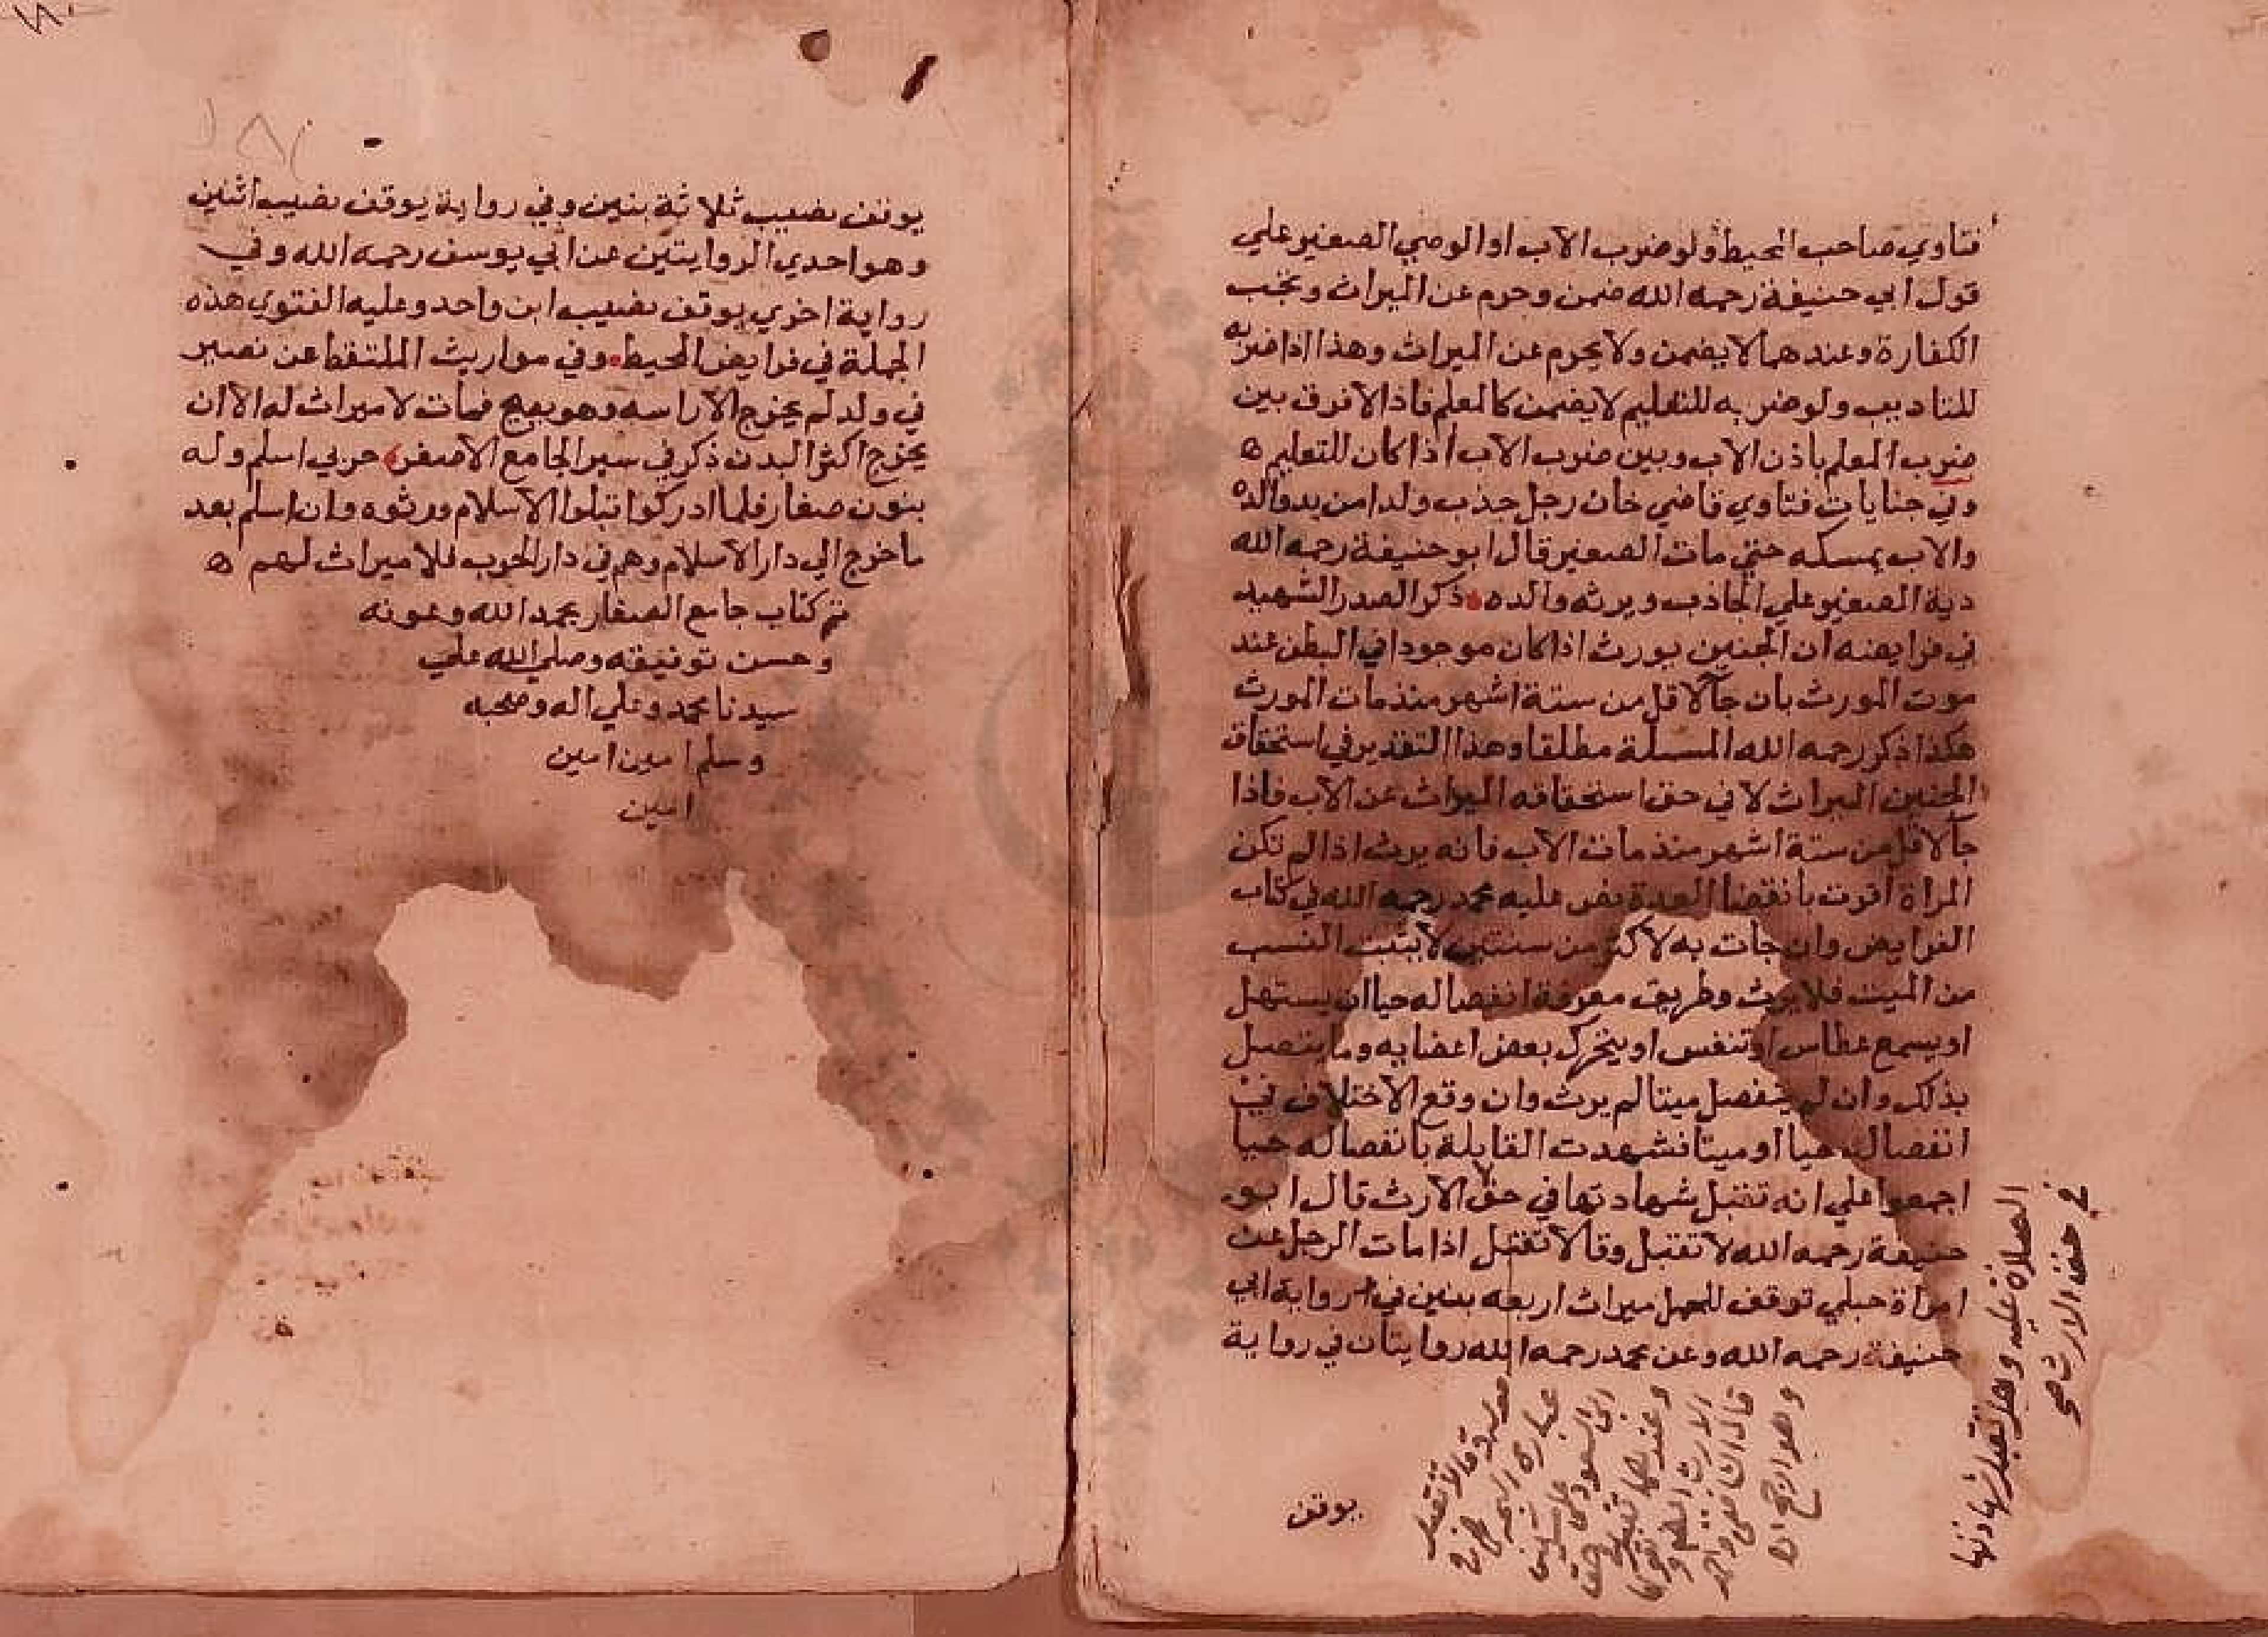 فتاوي صاحب المحيط ولو ضرب الاب او الوصي الصغير علي
قول ابي حنيفة رحمه الله ضمن وحرم عن الميراث وتجب
الكفارة وعندهما لا يضمن ولا يحرم عن الميراث وهذا اذا ضربه
للتاديب ولو ضربه للتعليم لا يضمن كالمعلم فاذا لا فرق بين
ضرب المعلم باذن الاب وبين ضرب الاب اذا كان للتعليم ه
وفي جنايات فتاوي قاضي خان رجل جذب ولدا من يد والده
والاب يمسكه حتي مات الصغير قال ابو حنيفة رحمه الله
دية الصغير علي الجاذب ويرثه والده ذكر الصدر الشهيد
في فرايضه ان الجنين يورث اذا كان موجودا في البطن عند
موت المورث بان جآ لاقل من ستة اشهر منذ مات المورث
هكذا ذكر رحمه الله المسلة مطلقا وهذا التقدير في استحقاق
الجنين الميراث لا في حق استحقاقه الميراث عن الاب فاذا
جآ لاقل من ستة اشهر منذ مات الاب فانه يرث اذا لم تكن
المراة اقرت بانقضا العدة نص عليه محمد رحمه الله في كتاب
الفرايض وان جات به لاكثر من سنتين لا يثبت النسب
من الميت فلا يورث وطريق معرفة انفصاله حيا ان يستهل
او يسمع عطاس او تنفس او يتحرك بعض اعضايه وما يتصل
بذلك وان لم ينفصل ميتا لم يرث وان وقع الاختلاف في
انفصاله حيا او ميتا فشهدت القابلة بانفصاله حيا
اجمعوا علي انه تقبل شهادتها في حق الارث قال ابو
حنيفة رحمه الله لا تقبل وقالا تقبل اذا مات الرجل عن
امراة حبلي توقف للحمل ميراث اربعه بنين في رواية ابي
حنيفة رحمه الله وعن محمد رحمه الله روايتان في رواية
يوقف
الصلاة عليه وهل تقبل شهادتها
في حق الارث
وقالا تقبل
عبارة البحر
وعندهما تقبل
الارث
وهو ارجح
يوقف نصيب ثلاثة بنين وفي رواية يوقف نصيب اثنين
وهو احدي الروايتين عن ابي يوسف رحمه الله وفي
رواية اخري يوقف نصيب ابن واحد وعليه الفتوي هذه
الجملة في فرايض المحيط وفي مواريث الملتقط عن نصير
في ولد لم يخرج الا راسه وهو يصيح فمات لا ميراث له الا ان
يخرج اكثر البدن ذكر في سير الجامع الاصغر حربي اسلم وله
بنون صغار فلما ادركوا قبلوا الاسلام ورثوه وان اسلم بعد
ما خرج الي دار الاسلام وهم في دار الحرب فلا ميراث لهم ه
تم كتاب جامع الصغار بحمد الله وعونه
وحسن توفيقه وصلي الله علي
سيدنا محمد وعلي اله وصحبه
وسلم امين امين
امين